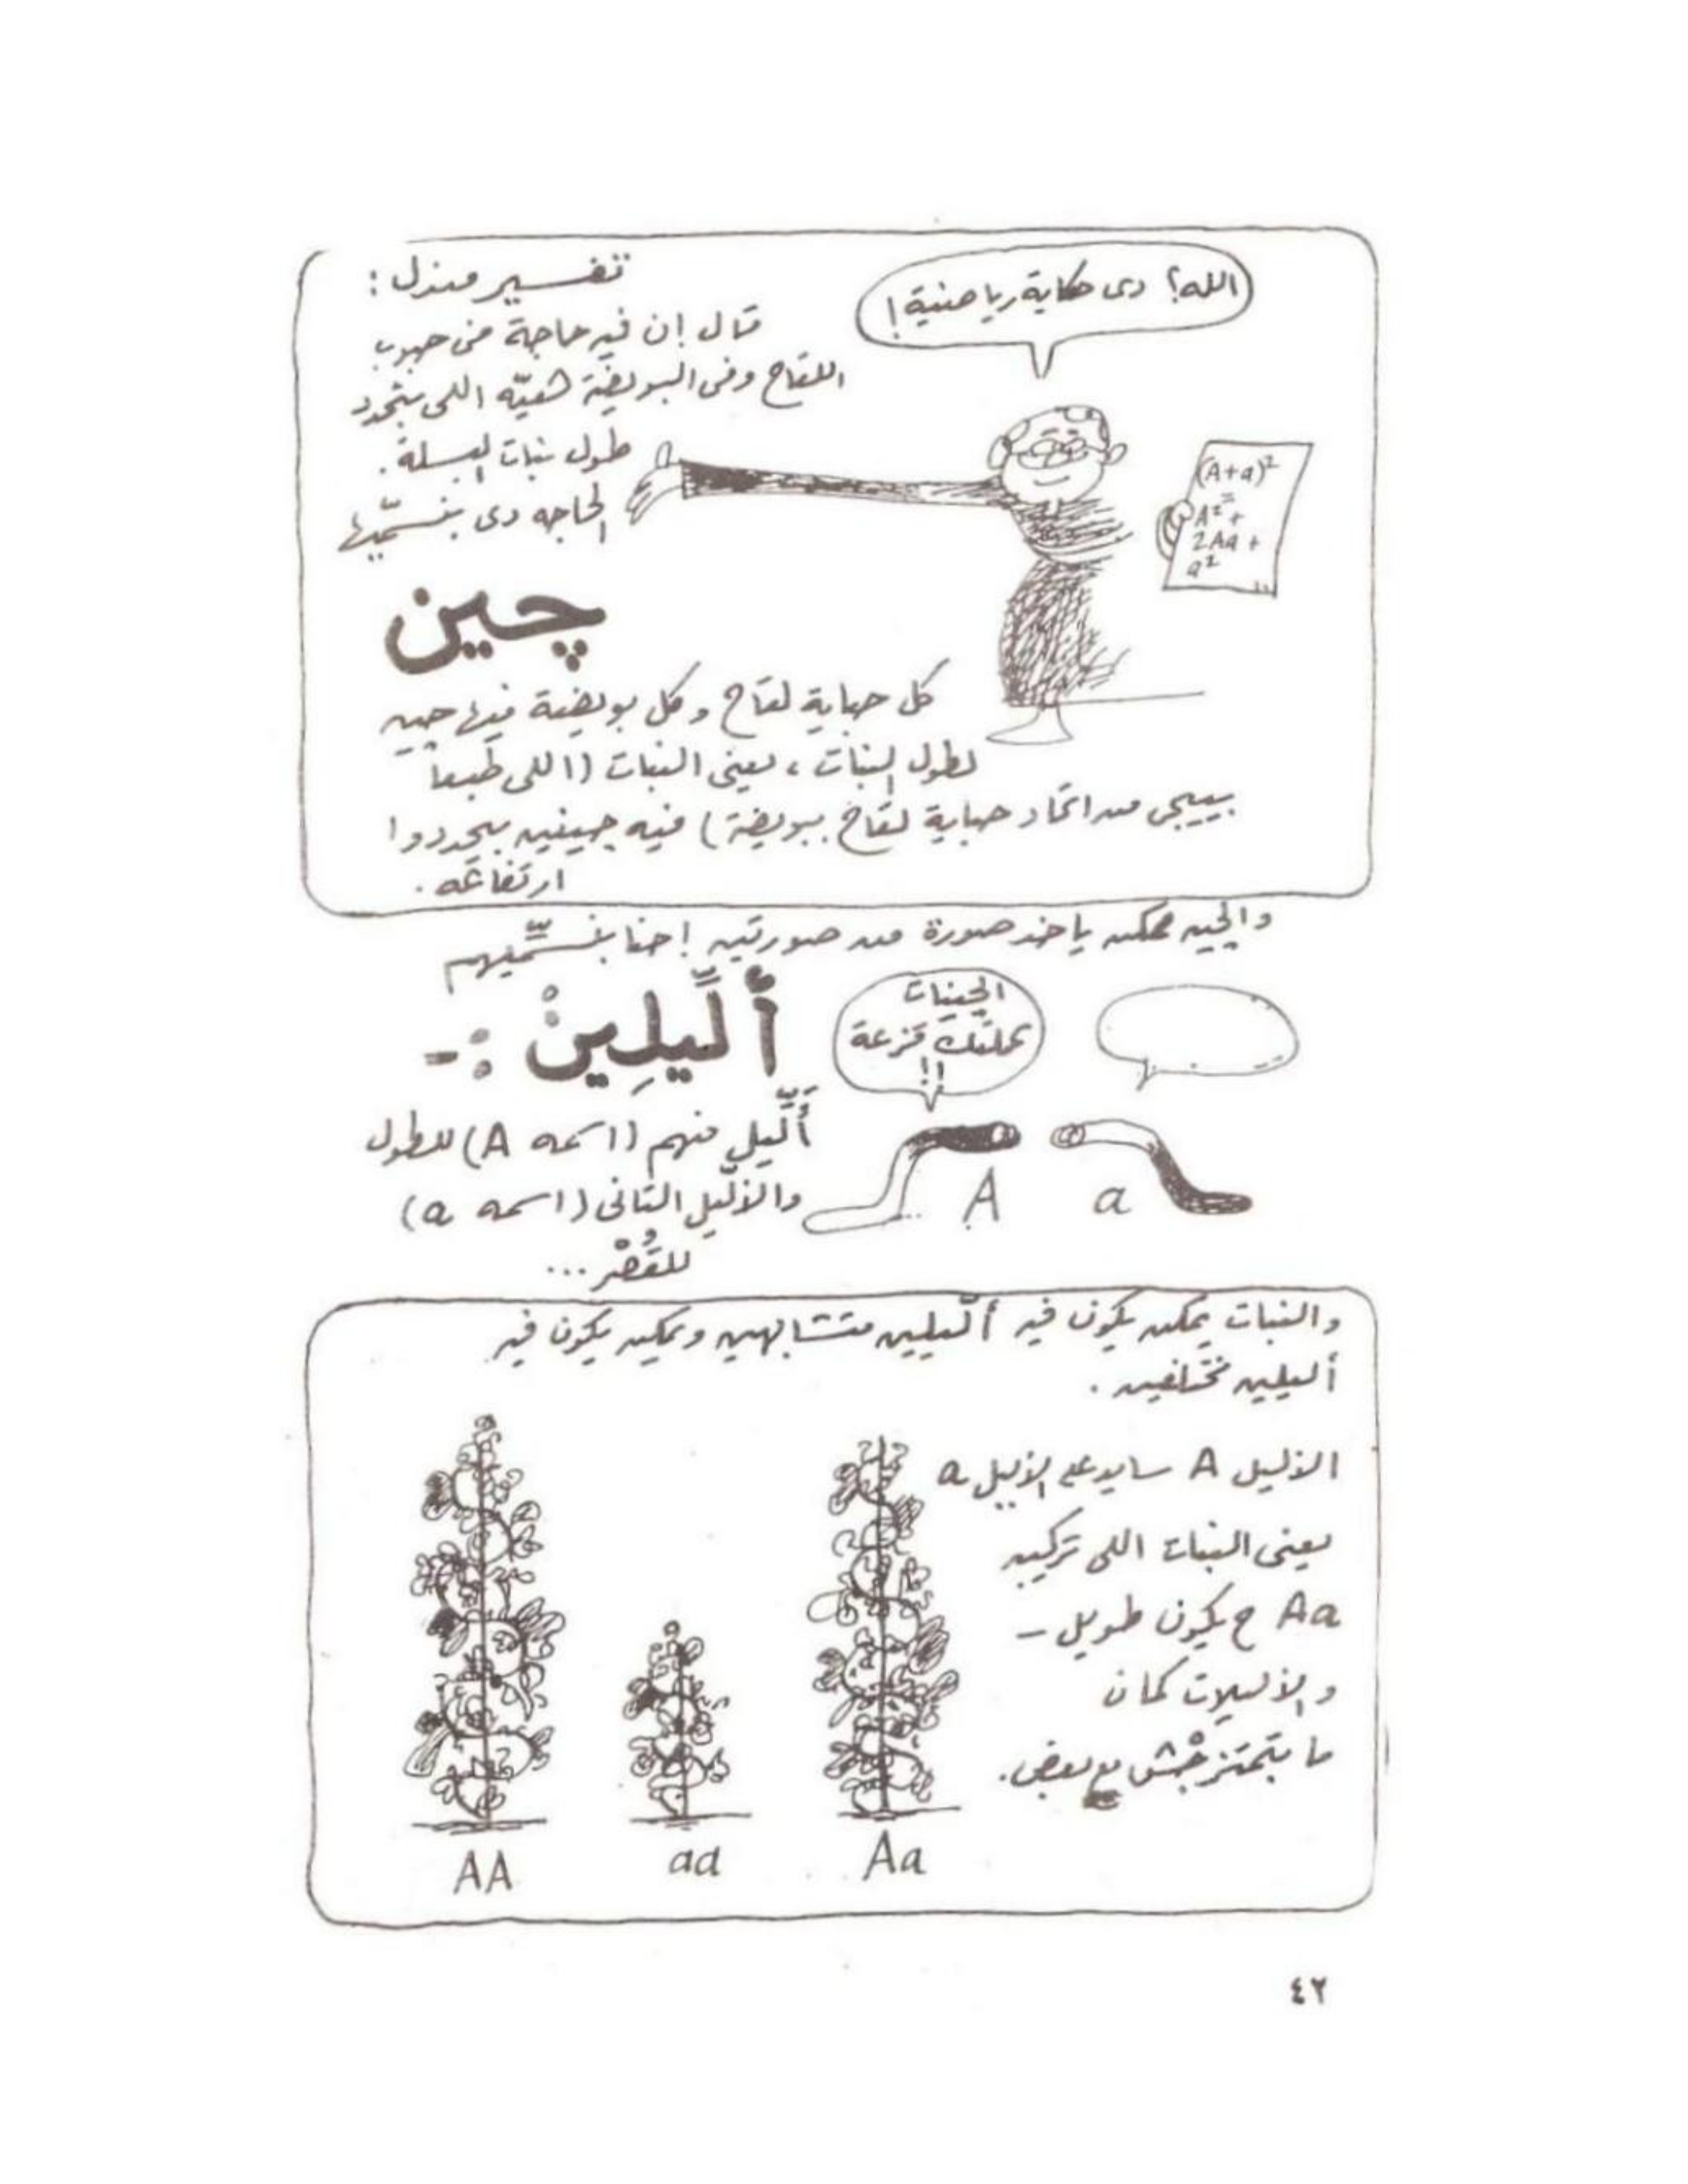 تفسير مندل :
قال إن فيه حاجة في حبوب
اللقاح وفى البويضة هيّه اللى بتحدد
طول نبات البسلة.
الحاجه دى بنسمّيها
چين
الله؟ دى حكاية رياضية!
(A+a)²
=
A² +
2Aa +
a²
كل حباية لقاح وكل بويضة فيها چين
لطول النبات ، يعنى النبات (اللى طبعا
بييجى من اتحاد حباية لقاح ببويضة) فيه چينين بيحددوا
ارتفاعه .
والچين ممكن ياخد صورة من صورتين إحنا بنسمِّيهم
ألِّيلِينْ :-
الچينات
عملتك قزعة
!!
أَلِّيل منهم (اسمه A) للطول
والألّيل التانى (اسمه a)
للقُصْر ...
A
a
والنبات يمكن يكون فيه ألّيلين متشابهين ويمكن يكون فيه
أليلين مختلفين .
الأليل A سايد على الأليل a
يعنى النبات اللى تركيبه
Aa ح يكون طويل –
والأليلات كمان
ما بتمتزجْش مع بعض.
AA
aa
Aa
٤٢